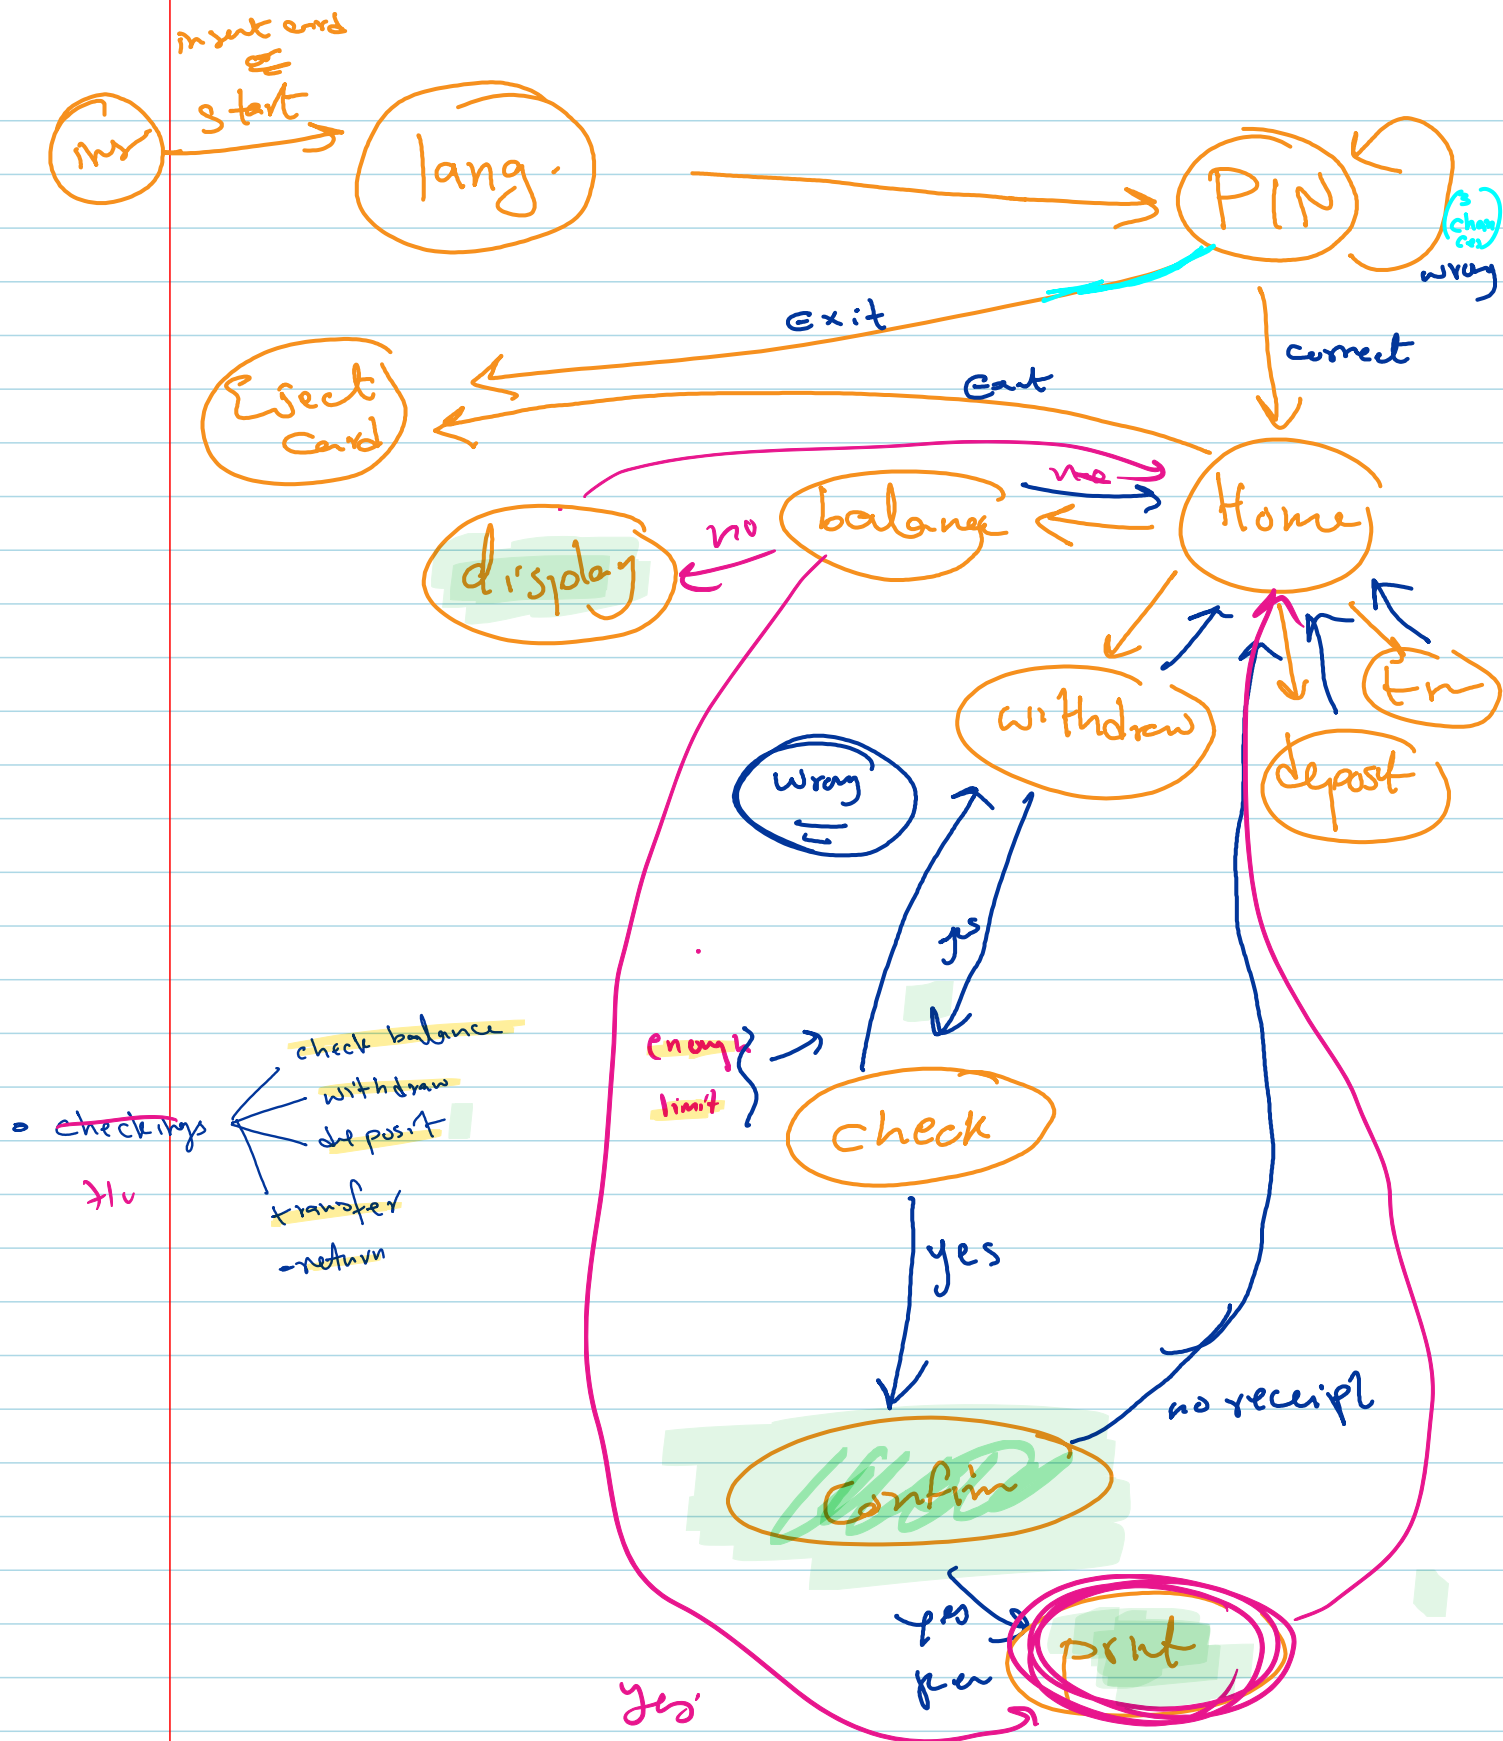 insert card
start
lang.
PIN
3
chances
wrong
Exit
correct
Eject
card
Home
balance
no
display
withdraw
tr
deposit
wrong
yes
enough
limit
check balance
withdraw
deposit
checkings
transfer
-return
check
yes
no receipt
confirm
yes
print
yes